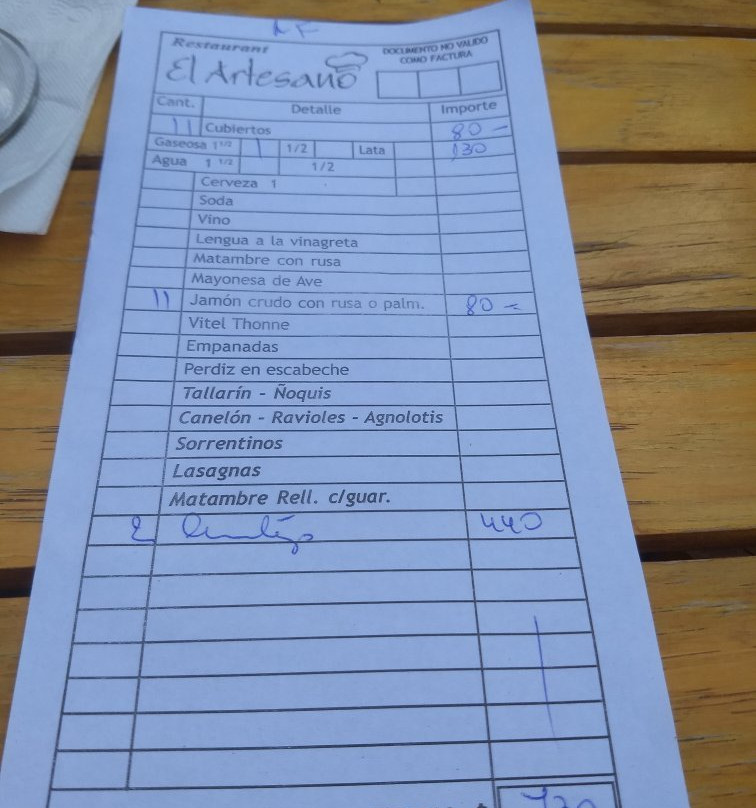 Restaurant
El Artesano
DOCUMENTO NO VALIDO
COMO FACTURA
Cant. Detalle Importe
11 Cubiertos 80 -
Gaseosa 1 1/2 1 1/2 Lata 130
Agua 1 1/2 1/2
Cerveza 1
Soda
Vino
Lengua a la vinagreta
Matambre con rusa
Mayonesa de Ave
11 Jamón crudo con rusa o palm. 80 -
Vitel Thonne
Empanadas
Perdiz en escabeche
Tallarín - Ñoquis
Canelón - Ravioles - Agnolotis
Sorrentinos
Lasagnas
Matambre Rell. c/guar.
2 440